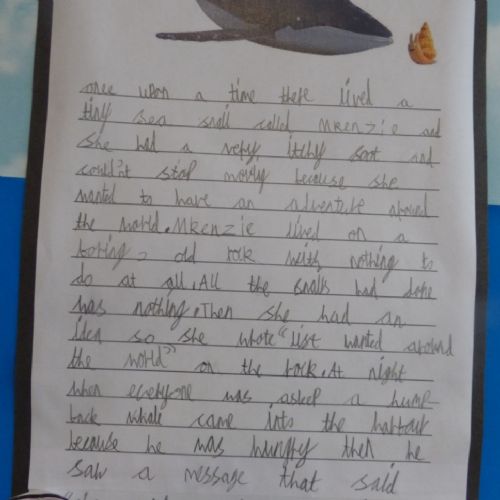 once upon a time there lived a
tiny sea snall called Mkenzie and
she had a very itchy foot and
couldn't stop moving because she
wanted to have an adventure around
the world. Mkenzie lived on a
boring, old rock with nothing to
do at all. All the snalls had done
was nothing. Then she had an
idea so she wrote "list wanted around
the world" on the rock. At night
when everyone was asleep a hump
back whale came into the harbour
because he was hungry then he
saw a message that said